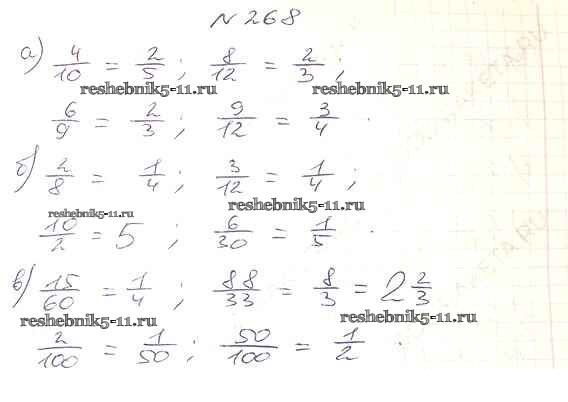 N 268
а) 4/10 = 2/5 ; 8/12 = 2/3 ;
reshebnik5-11.ru reshebnik5-11.ru
6/9 = 2/3 ; 9/12 = 3/4 .
б) 2/8 = 1/4 ; 3/12 = 1/4 ;
reshebnik5-11.ru reshebnik5-11.ru
10/2 = 5 ; 6/30 = 1/5 .
в) 15/60 = 1/4 ; 88/33 = 8/3 = 2 2/3
reshebnik5-11.ru reshebnik5-11.ru
2/100 = 1/50 ; 50/100 = 1/2 .